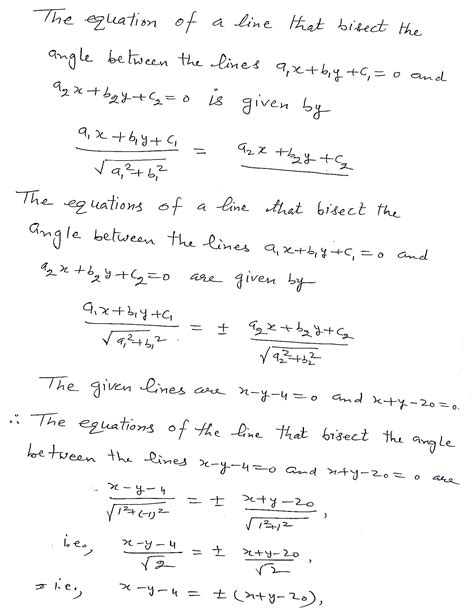 The equation of a line that bisect the
angle between the lines a₁x+b₁y+c₁=0 and
a₂x+b₂y+c₂=0 is given by
(a₁x+b₁y+c₁)/√(a₁²+b₁²) = a₂x+b₂y+c₂
The equations of a line that bisect the
angle between the lines a₁x+b₁y+c₁=0 and
a₂x+b₂y+c₂=0 are given by
(a₁x+b₁y+c₁)/√(a₁²+b₁²) = ± (a₂x+b₂y+c₂)/√(a₂²+b₂²)
The given lines are x-y-4=0 and x+y-20=0.
∴ The equations of the line that bisect the angle
between the lines x-y-4=0 and x+y-20=0 are
(x-y-4)/√(1²+(-1)²) = ± (x+y-20)/√(1²+1²),
i.e., (x-y-4)/√2 = ± (x+y-20)/√2,
i.e., x-y-4 = ± (x+y-20),